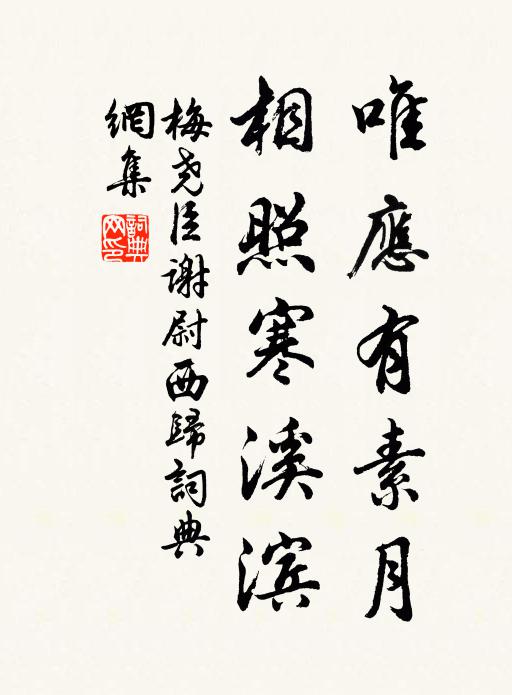 唯應有素月
相照寒溪滨
梅尧臣谢尉西歸詞典
網集
詞典
网印